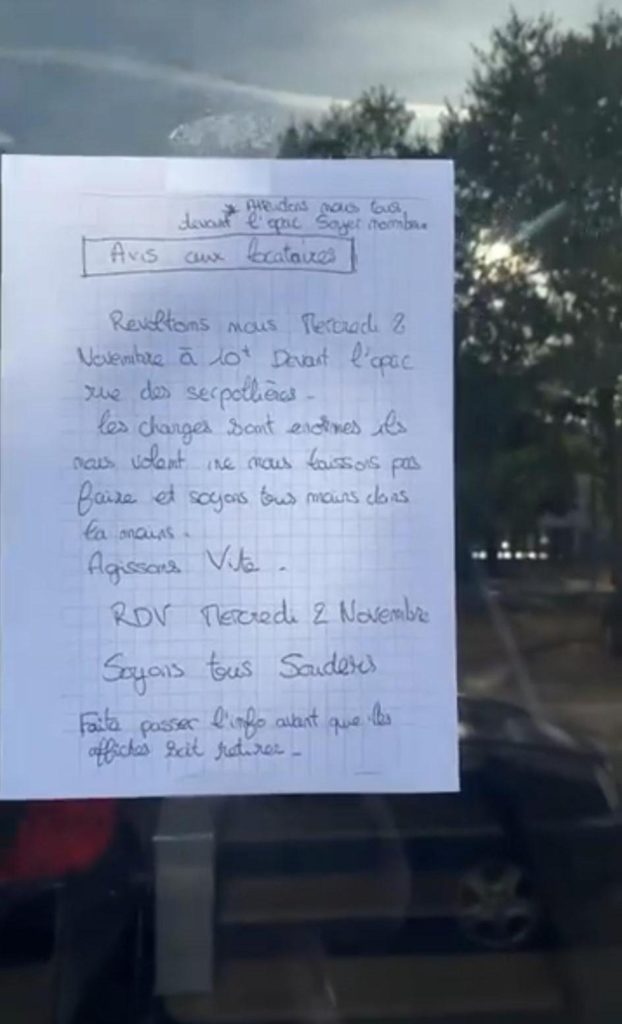 * Attendons nous tous
devant l'opac Soyer nombre
Avis aux locataires
Revoltons nous Mercredi 2
Novembre à 10H Devant l'opac
rue des serpollières.
les charges sont enormes ils
nous volent ne nous laissons pas
faire et soyons tous mains dans
la mains.
Agissons Vite.
RDV Mercredi 2 Novembre
Soyons tous Souders
Faite passer l'info avant que les
affiches soit retirer.